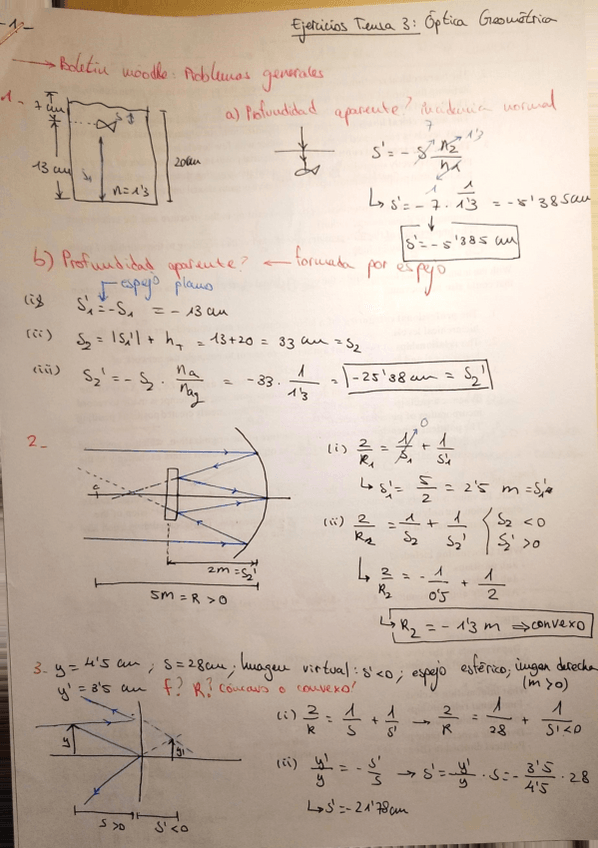 -1-
Ejercicios Tema 3: Óptica Geométrica
→ Boletín moodle: Problemas generales
1- a) Profundidad aparente? Incidencia normal
7 cm
13 cm
S
S1
n=1'3
20cm
7 1'3
S' = - S n2/n1
1
↳ S' = - 7 · 1/1'3 = -5'385 cm
S' = -5'385 cm
b) Profundidad aparente? ← formada por espejo
espejo plano
(i) S1' = -S1 = -13 cm
(ii) S2 = |S1'| + hT = 13+20 = 33 cm = S2
(iii) S2' = - S2 · na/nag = -33 · 1/1'3 = -25'38 cm = S2'
2-
c
2m = S2'
5m = R > 0
(i) 2/R1 = 1/S1 + 1/S1'
0
↳ S1' = 5/2 = 2'5 m = S1'
(ii) 2/R2 = 1/S2 + 1/S2' { S2 < 0
S2' > 0
↳ 2/R2 = - 1/0'5 + 1/2
↳ R2 = -1'3 m ⇒ convexo
3- y = 4'5 cm ; S = 28cm ; Imagen virtual: S' < 0 ; espejo esférico ; imagen derecha
(m > 0)
y' = 3'5 cm f? R? Cóncavo o convexo?
y
y'
S>0 S'<0
(i) 2/R = 1/S + 1/S' → 2/R = 1/28 + 1/S'<0
(ii) y'/y = - S'/S → S' = - y'/y · S = - 3'5/4'5 · 28
↳ S' = -21'78 cm